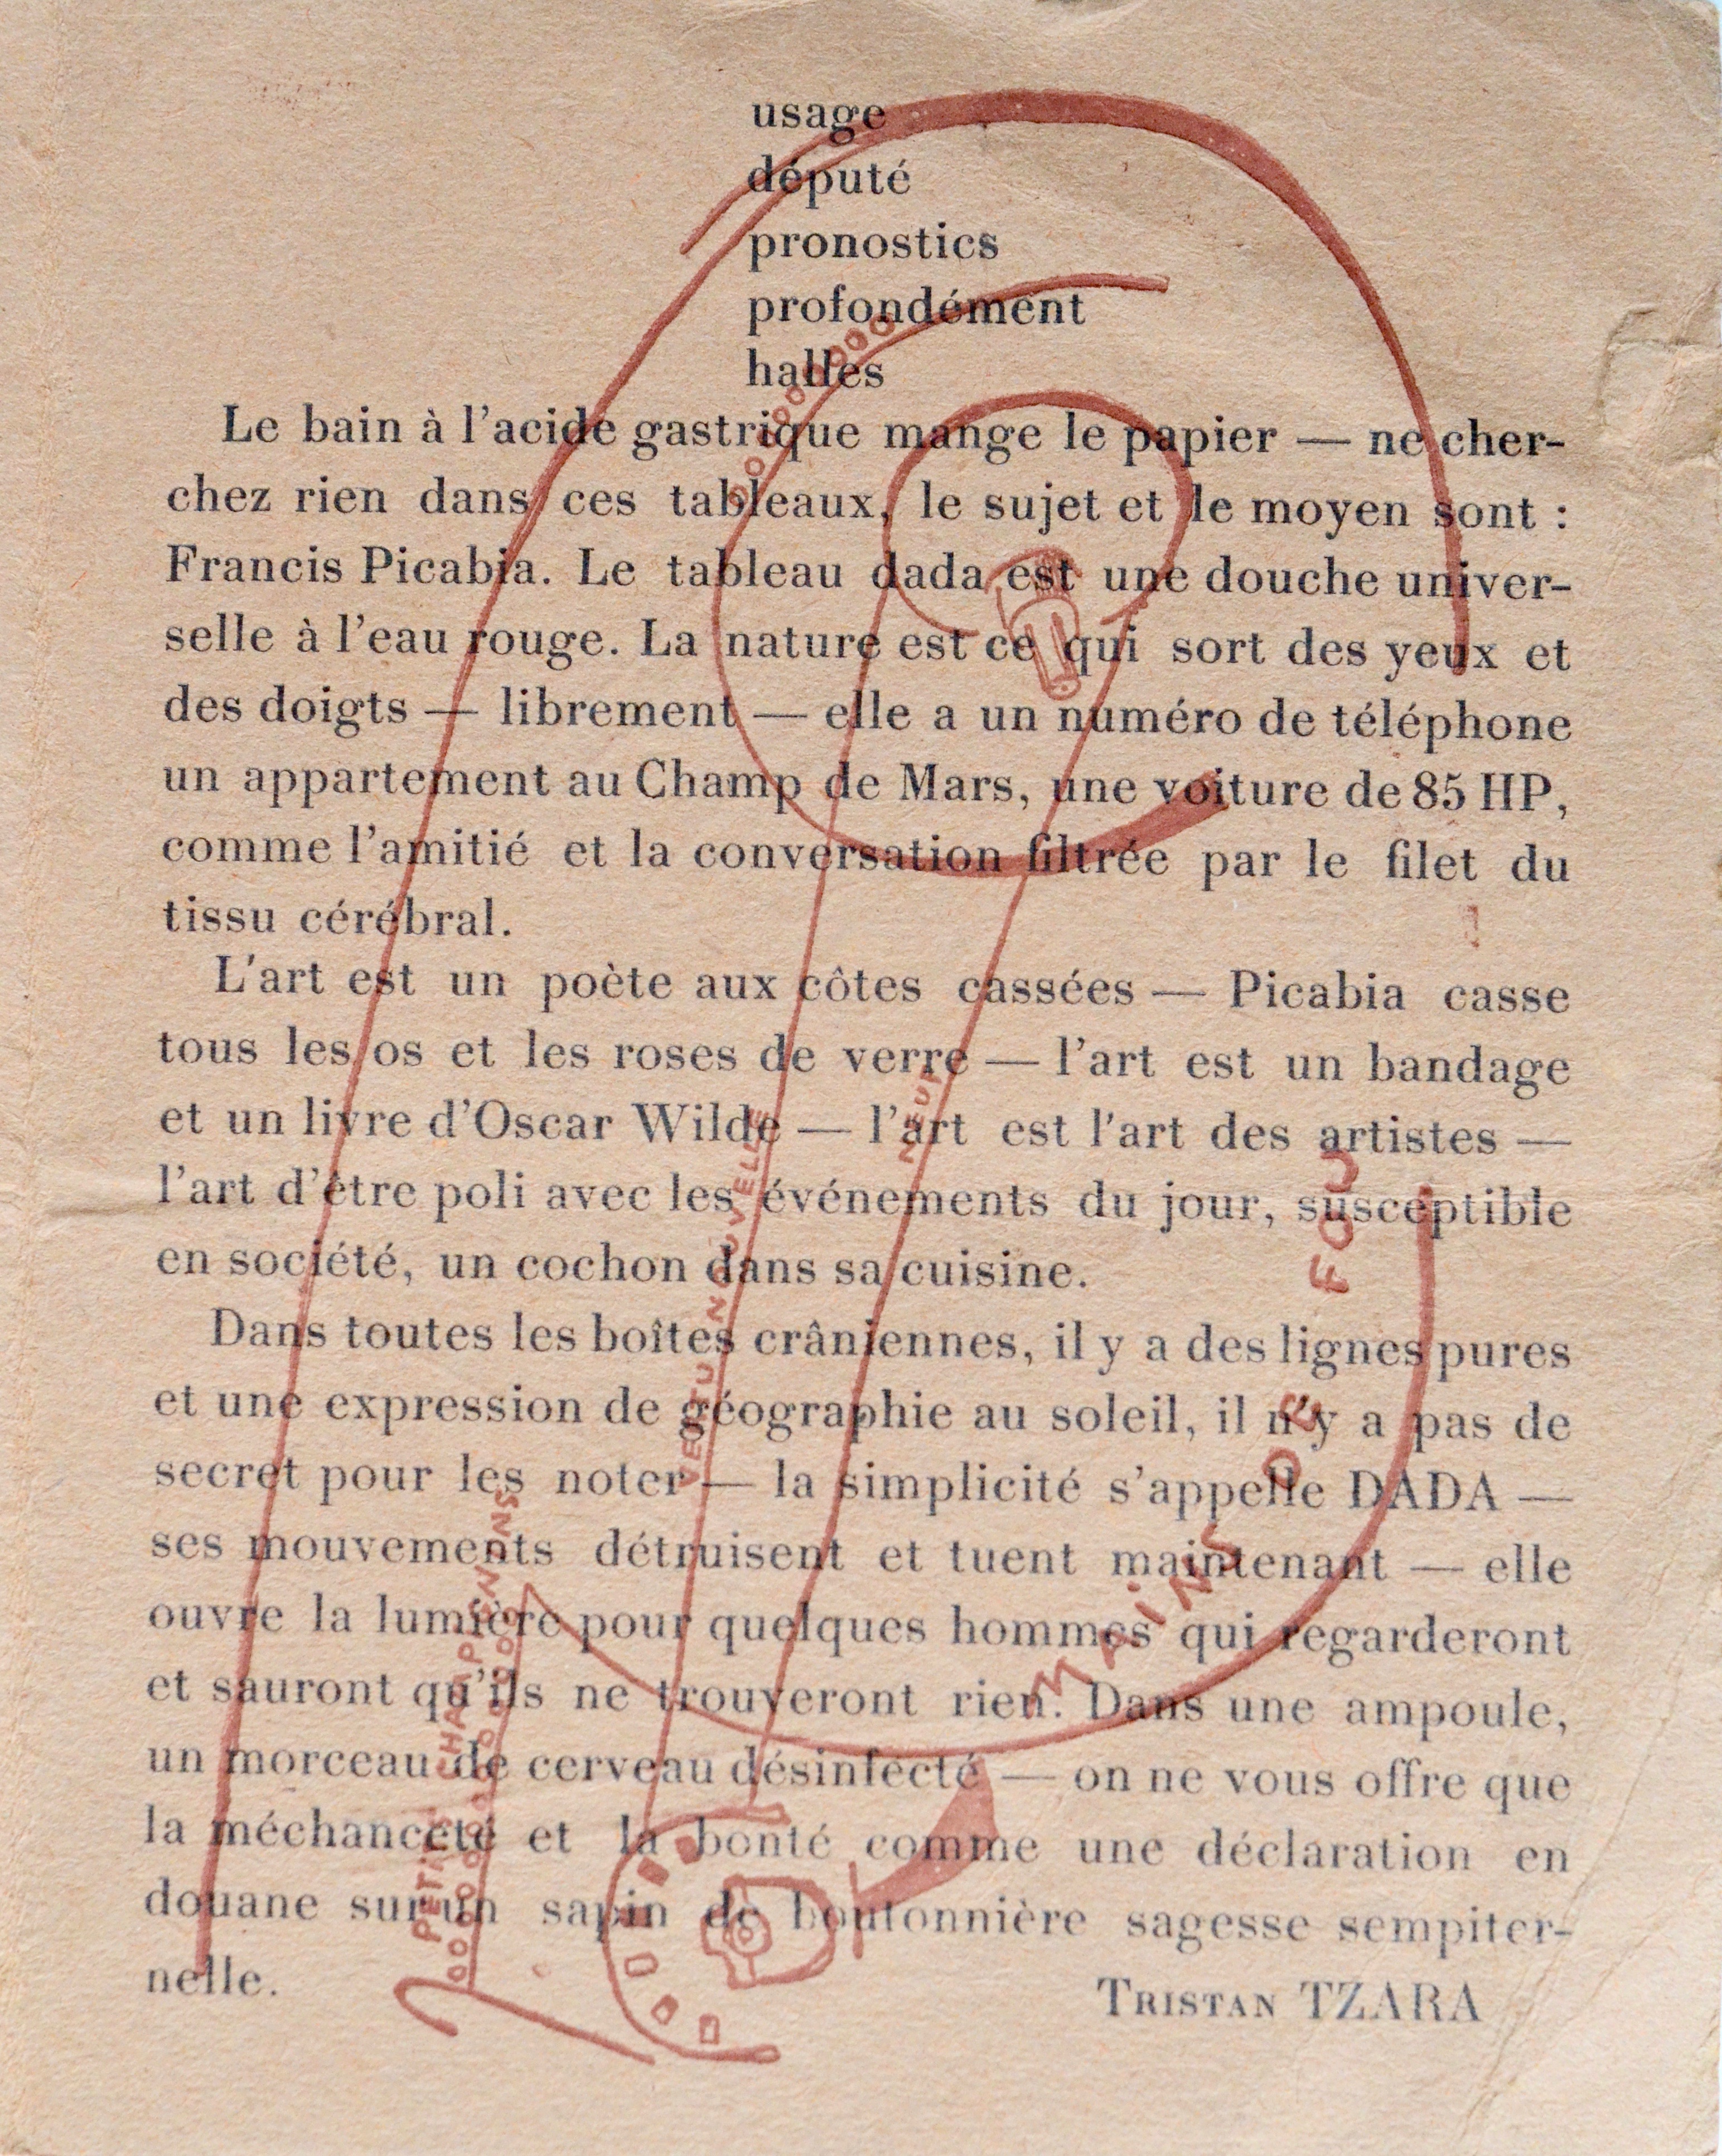 usage
député
pronostics
profondément
halles
Le bain à l'acide gastrique mange le papier — ne cher-
chez rien dans ces tableaux, le sujet et le moyen sont :
Francis Picabia. Le tableau dada est une douche univer-
selle à l'eau rouge. La nature est ce qui sort des yeux et
des doigts — librement — elle a un numéro de téléphone
un appartement au Champ de Mars, une voiture de 85 HP,
comme l'amitié et la conversation filtrée par le filet du
tissu cérébral.
L'art est un poète aux côtes cassées — Picabia casse
tous les os et les roses de verre — l'art est un bandage
et un livre d'Oscar Wilde — l'art est l'art des artistes —
l'art d'être poli avec les événements du jour, susceptible
en société, un cochon dans sa cuisine.
Dans toutes les boîtes crâniennes, il y a des lignes pures
et une expression de géographie au soleil, il n'y a pas de
secret pour les noter — la simplicité s'appelle DADA —
ses mouvements détruisent et tuent maintenant — elle
ouvre la lumière pour quelques hommes qui regarderont
et sauront qu'ils ne trouveront rien. Dans une ampoule,
un morceau de cerveau désinfecté — on ne vous offre que
la méchanceté et la bonté comme une déclaration en
douane sur un sapin de boutonnière sagesse sempiter-
nelle.
TRISTAN TZARA
VERTU NOUVELLE
NEUF
MAiNS DE FOU
PETiTS CHAMPIGNONS